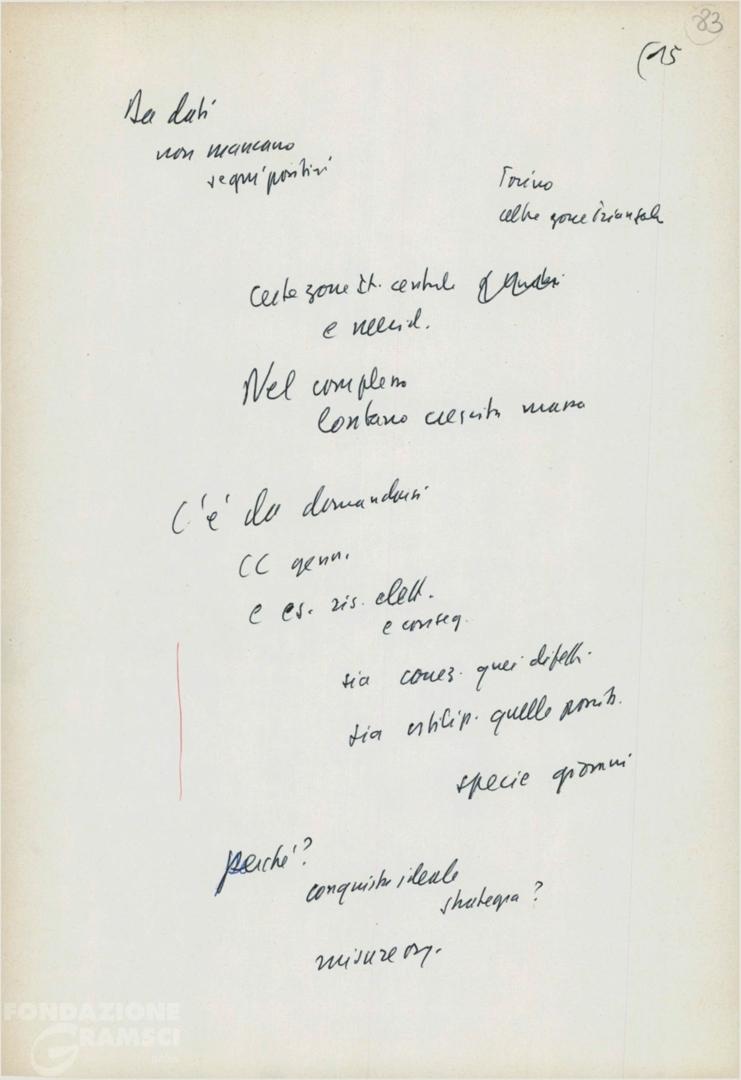 83
(15
Da dati
non mancano
segni positivi
Torino
altre zone triangolo
Certe zone It. centrale
e merid.
Nel complesso
lontano crescita massa
C'è da domandarsi
CC genn.
e es. ris. elett.
e conseg.
sia correz. quei difetti
sia utilizz. quelle possib.
specie giovani
perché?
conquista ideale
strategia?
misure org.
FONDAZIONE
GRAMSCI